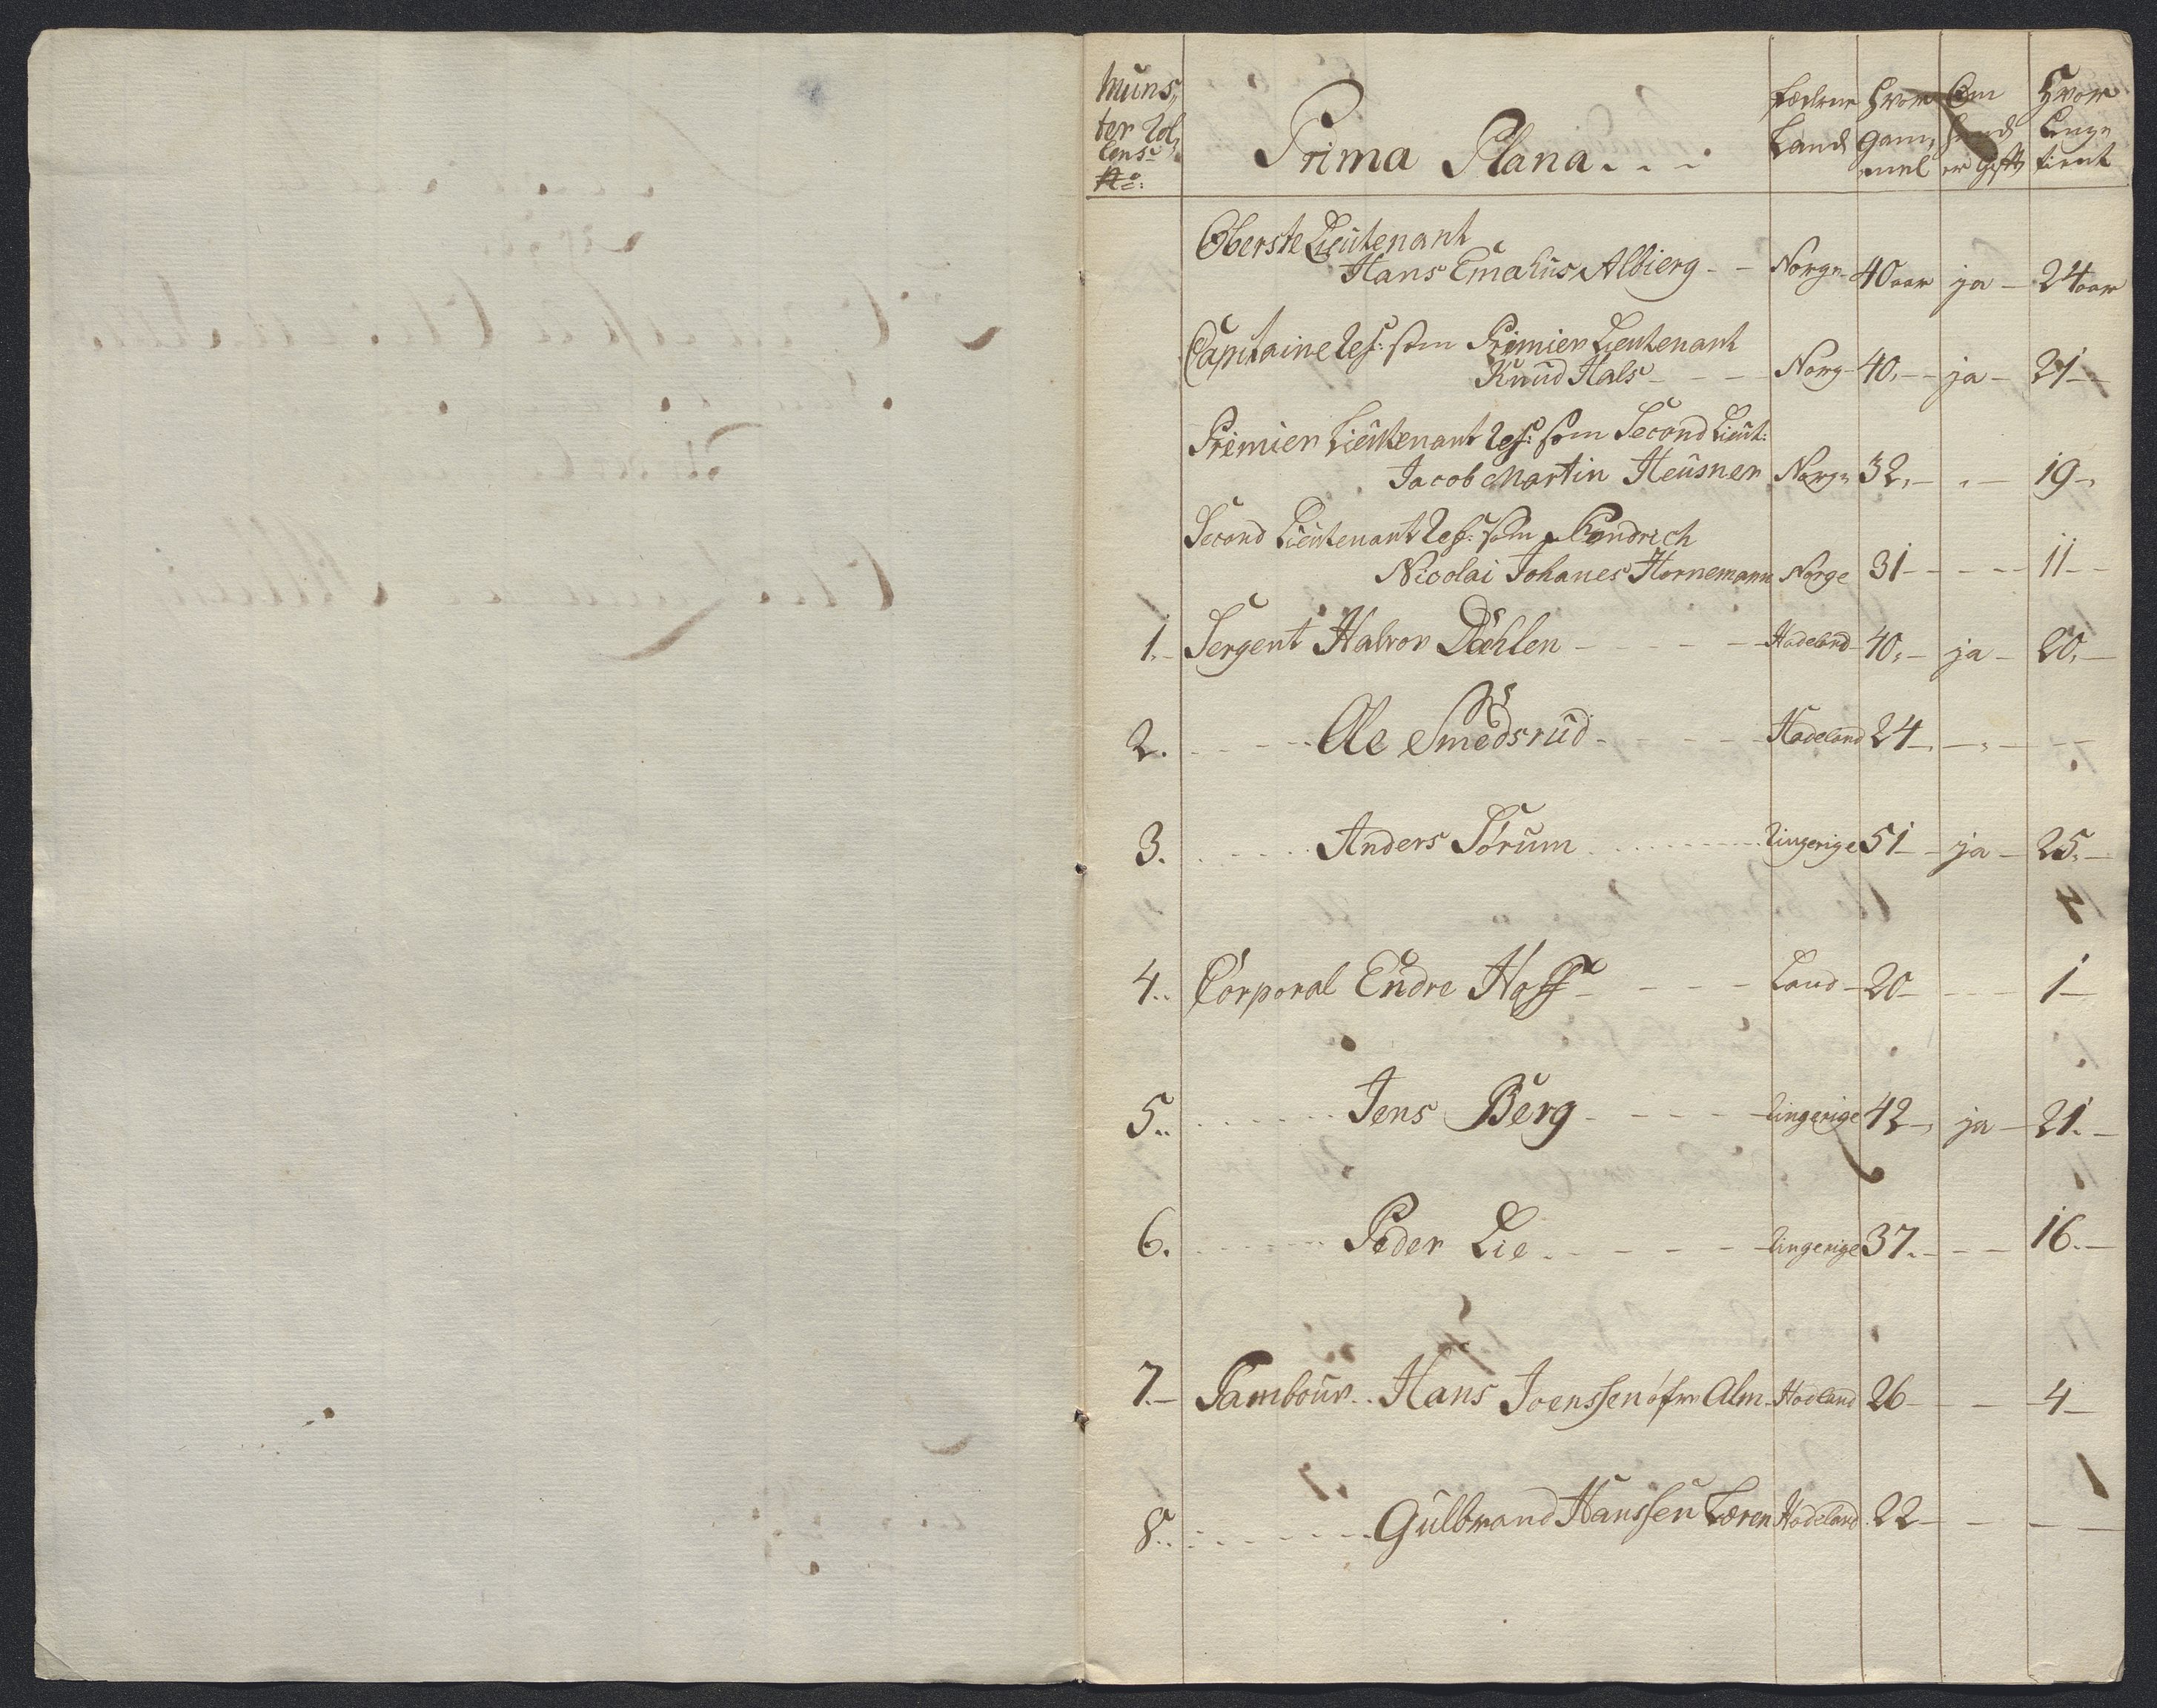 Muns,,
ter Rol,
lens
No:
Prima Plana . . .
Fæderne
Land
Hvor
gam,
mel
Om
hand
er Gift
Hvor
Lenge
tient
Oberste Lieutenant
Hans Emahus Albierg - - Norge 40 aar ja - 24 aar
Capitaine Ref: som Premier Lieutenant
Knud Hals - - - Norg- 40,- - ja - 21 - -
Premier Lieutenant Ref: som Second Lieut:
Jacob Martin Heusner Norge 32,- ,- 19 -,
Second Lieutenant Ref: som Fendrich
Nicolai Johanes Hornemann Norge 31 - - - - 11 - -
1. Sergent Halvor Dæhlen - - - - Hadeland 40,- ja - 20,-
2. - - - Ole Smedsrud - - - - Hadeland 24 -, -,- - -
3. - - - Anders Sørum - - - - Ringerige 51 - ja - 25,-
4.. Corporal Endre Hoff - - - - Land - 20 - - - 1 -
5.. - - - Jens Berg - - - - Ringerige 42 -, ja - 21. -
6. - - - Peder Lie - - - - Ringerige 37. - - - 16. -
7.- Tambour.. Hans Joenssen øfre Alm - Hadeland 26 - - - 4 -
8.. - - - Gulbrand Hanssen Løren Hadeland 22 - - - -